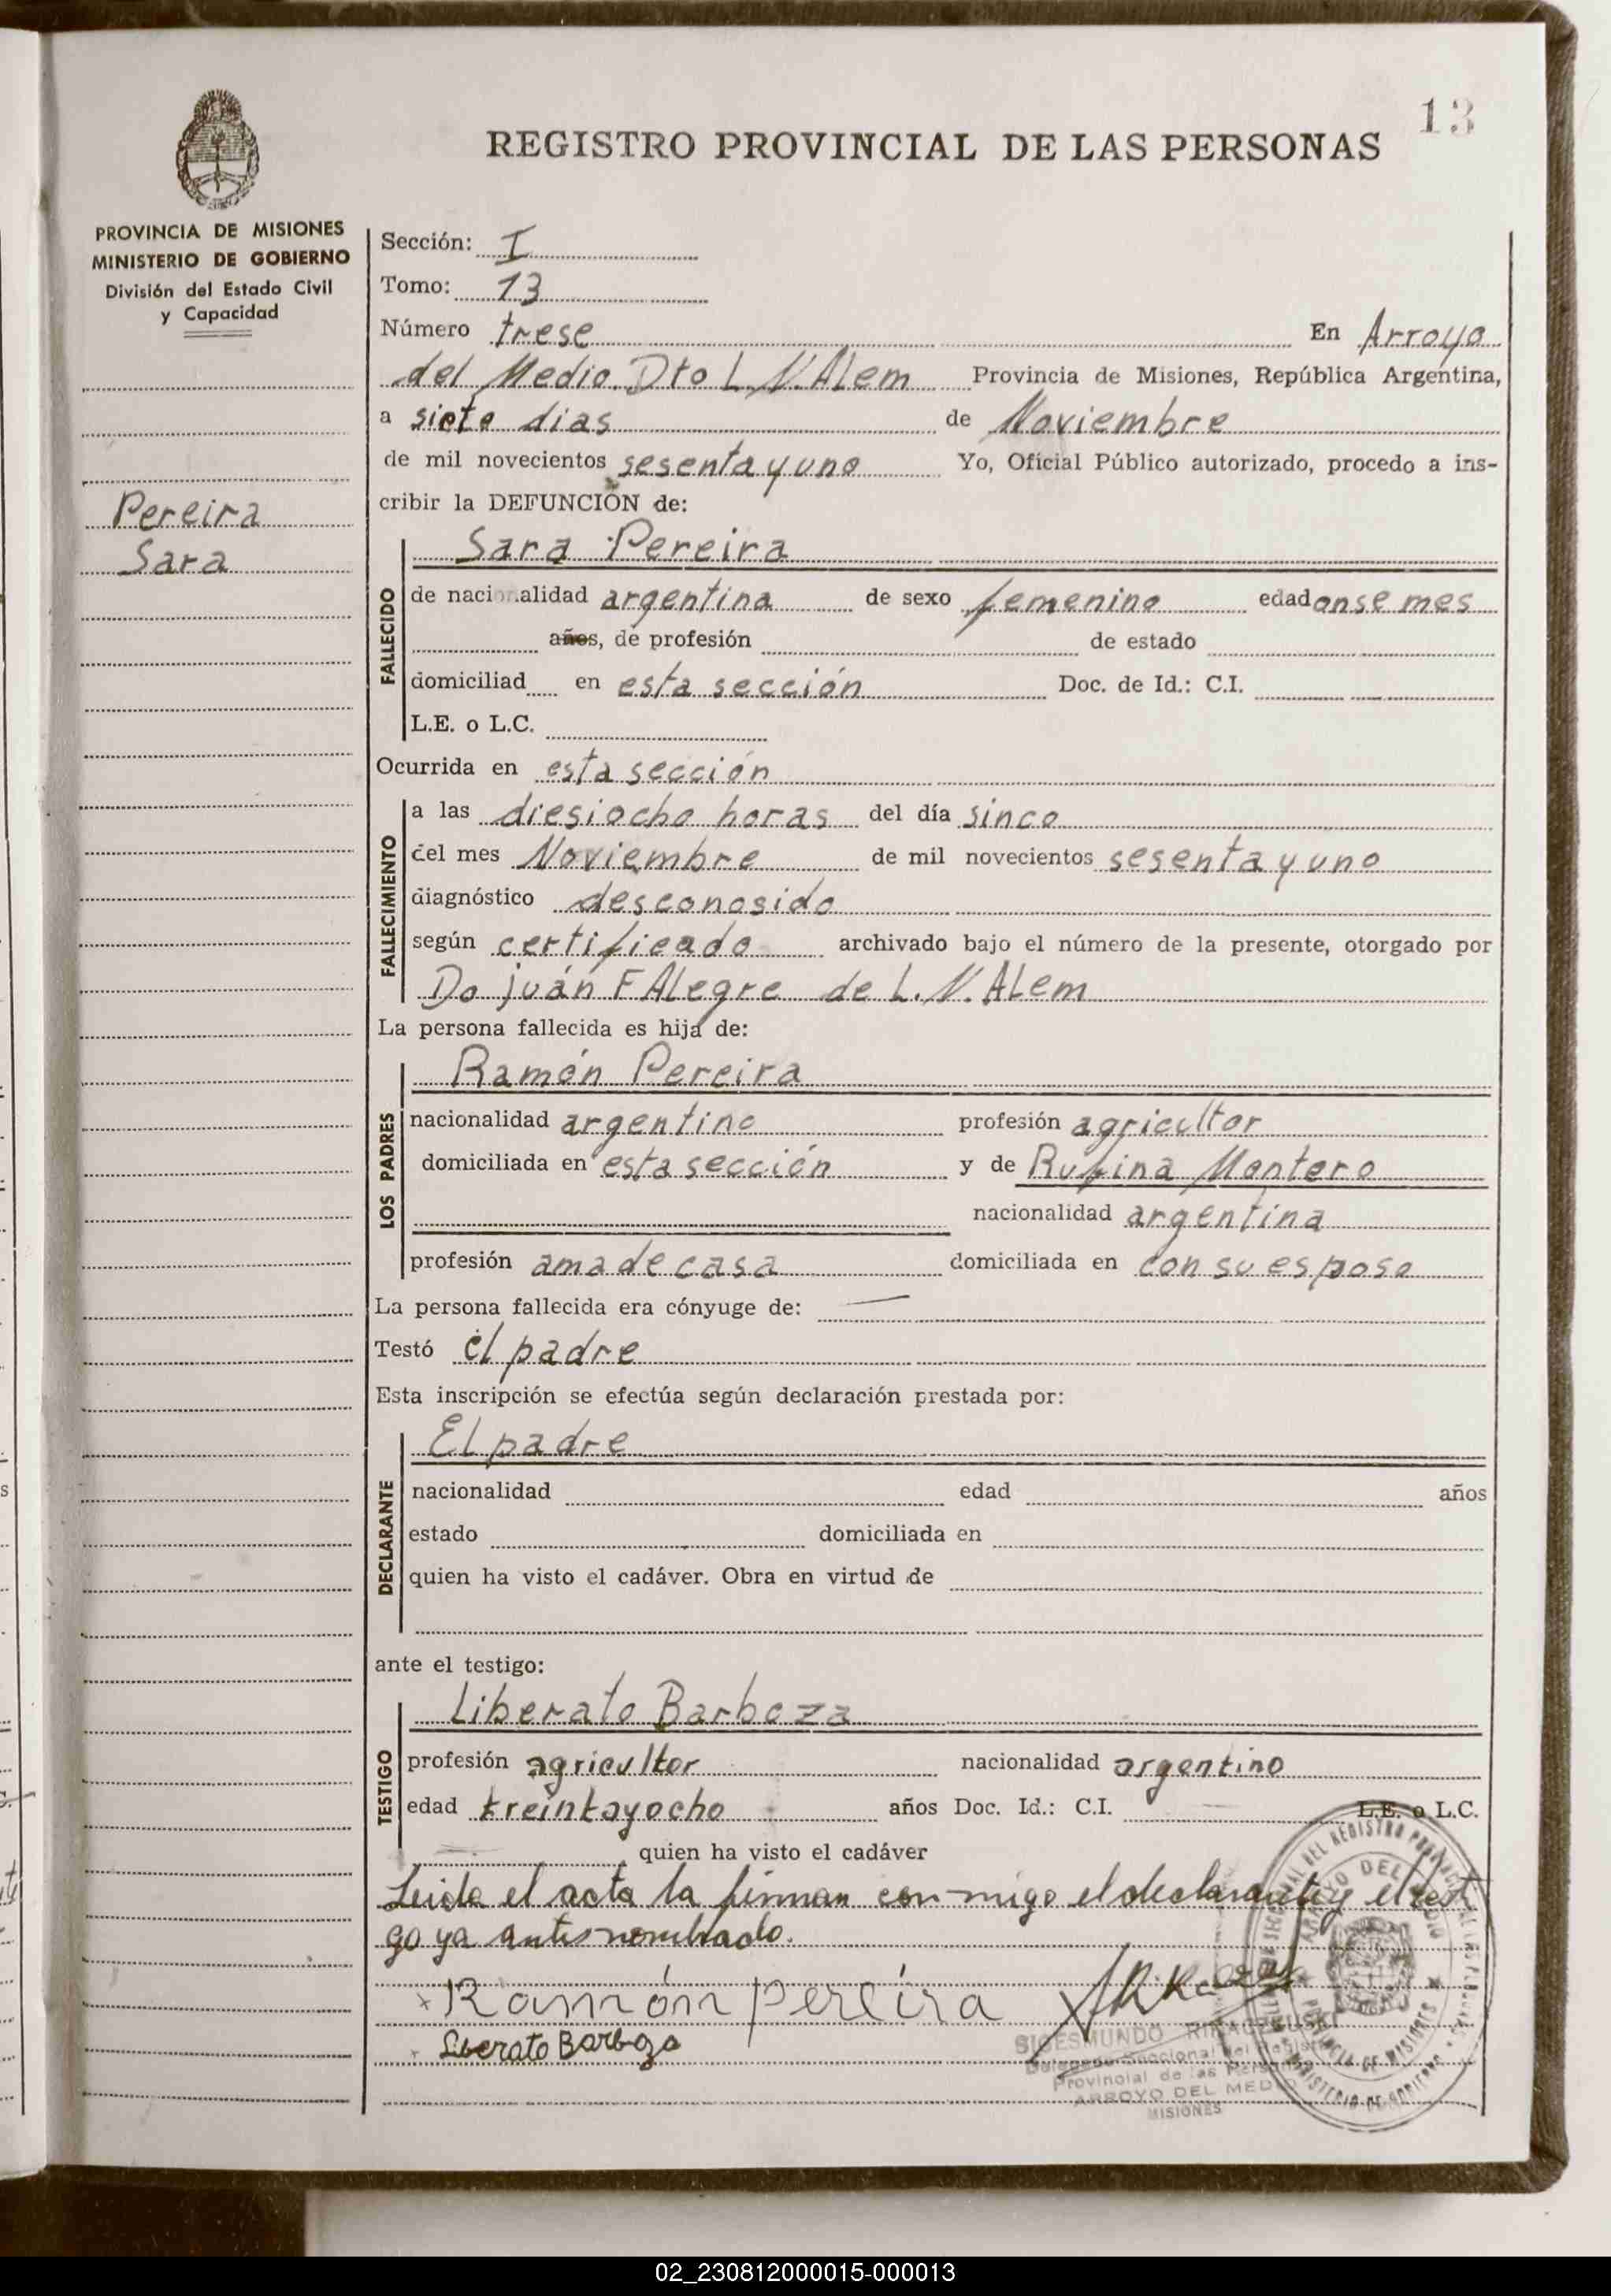 13
REGISTRO PROVINCIAL DE LAS PERSONAS
PROVINCIA DE MISIONES
MINISTERIO DE GOBIERNO
División del Estado Civil
y Capacidad
Pereira
Sara
Sección: I
Tomo: 13
Número trese En Arroyo
del Medio Dto L.N.Alem Provincia de Misiones, República Argentina,
a siete dias de Noviembre
de mil novecientos sesenta y uno Yo, Oficial Público autorizado, procedo a ins-
cribir la DEFUNCIÓN de:
FALLECIDO
Sara Pereira
de nacionalidad argentina de sexo femenino edad onse mes
años, de profesión de estado
domiciliad en esta sección Doc. de Id.: C.I.
L.E. o L.C.
Ocurrida en esta sección
FALLECIMIENTO
a las diesiocho horas del día sinco
del mes Noviembre de mil novecientos sesenta y uno
diagnóstico desconosido
según certificado archivado bajo el número de la presente, otorgado por
Do juán F Alegre de L.N.Alem
La persona fallecida es hija de:
LOS PADRES
Ramón Pereira
nacionalidad argentino profesión agricultor
domiciliada en esta sección y de Rufina Montero
nacionalidad argentina
profesión ama de casa domiciliada en con su esposo
La persona fallecida era cónyuge de: —
Testó el padre
Esta inscripción se efectúa según declaración prestada por:
DECLARANTE
El padre
nacionalidad edad años
estado domiciliada en
quien ha visto el cadáver. Obra en virtud de
ante el testigo:
TESTIGO
Liberato Barboza
profesión agricultor nacionalidad argentino
edad treintayocho años Doc. Id.: C.I. L.E. o L.C.
quien ha visto el cadáver
Leida el acta la firman con migo el declarante y el testi
go ya antes nombrado.
x Ramón pereira
Liberato Barboza
SIGESMUNDO
Delegado Seccional del Registro
Provincial de las Personas
ARROYO DEL MEDIO
MISIONES
02_230812000015-000013